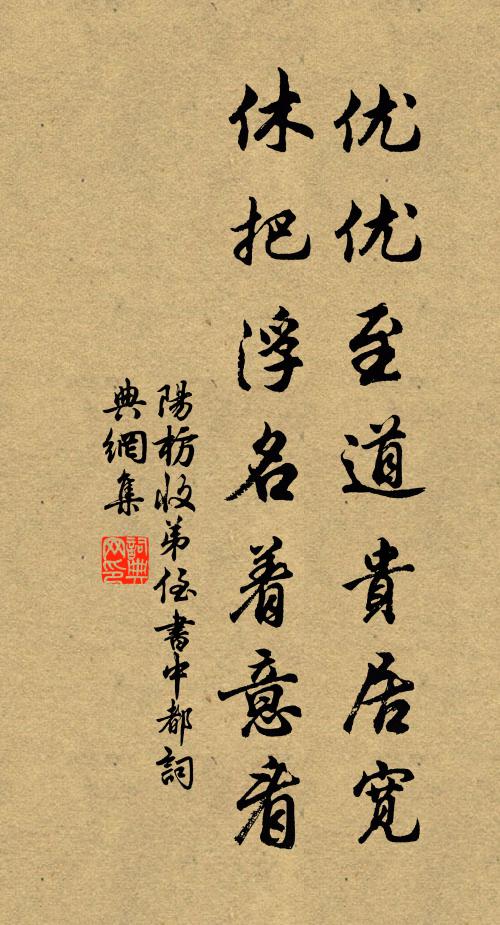 优优至道貴居寬
休把浮名着意看
陽枋收弟侄書中都詞
典網集
詞典
网印